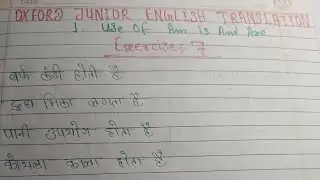 OXFORD JUNIOR ENGLISH TRANSLATION
1. Use Of Am is And Are
Exercise: 7
बर्फ ठंडी होती है
दूध मिठा लगता है
पानी उपयोग होता है
कोयला काला होता है